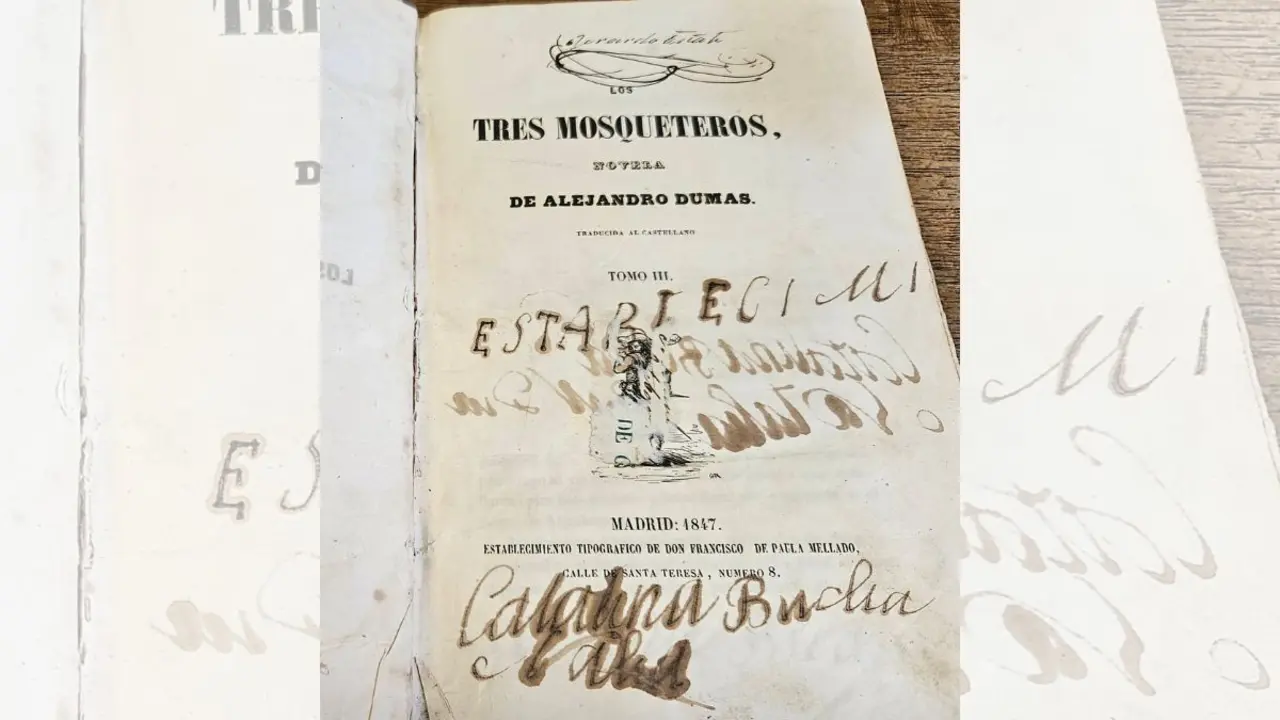 LOS
TRES MOSQUETEROS,
NOVELA
DE ALEJANDRO DUMAS.
TRADUCIDA AL CASTELLANO
TOMO III.
ESTABLECI MI
DE G
MADRID: 1847.
ESTABLECIMIENTO TIPOGRAFICO DE DON FRANCISCO DE PAULA MELLADO,
CALLE DE SANTA TERESA, NUMERO 8.
Catalina Bucha